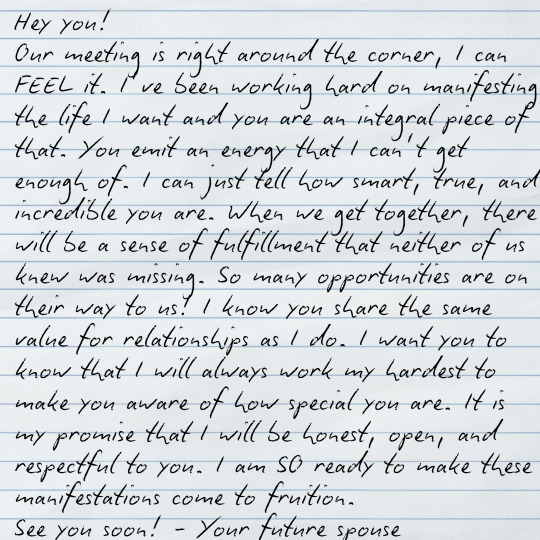 Hey you!
Our meeting is right around the corner, I can
FEEL it. I've been working hard on manifesting
the life I want and you are an integral piece of
that. You emit an energy that I can't get
enough of. I can just tell how smart, true, and
incredible you are. When we get together, there
will be a sense of fulfillment that neither of us
knew was missing. So many opportunities are on
their way to us! I know you share the same
value for relationships as I do. I want you to
know that I will always work my hardest to
make you aware of how special you are. It is
my promise that I will be honest, open, and
respectful to you. I am SO ready to make these
manifestations come to fruition.
See you soon! - Your future spouse